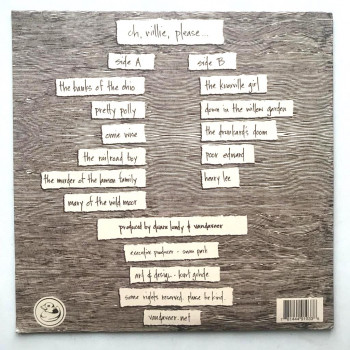 oh, willie, please...
side A
the banks of the ohio
pretty polly
omie wise
the railroad boy
the murder of the lawson family
mary of the wild moor
side B
the knoxville girl
down in the willow garden
the drunkard's doom
poor edward
henry lee
produced by duane lundy & vandaveer
executive producer - swan park
art & design -
some rights reserved. please be kind.
vandaveer.net